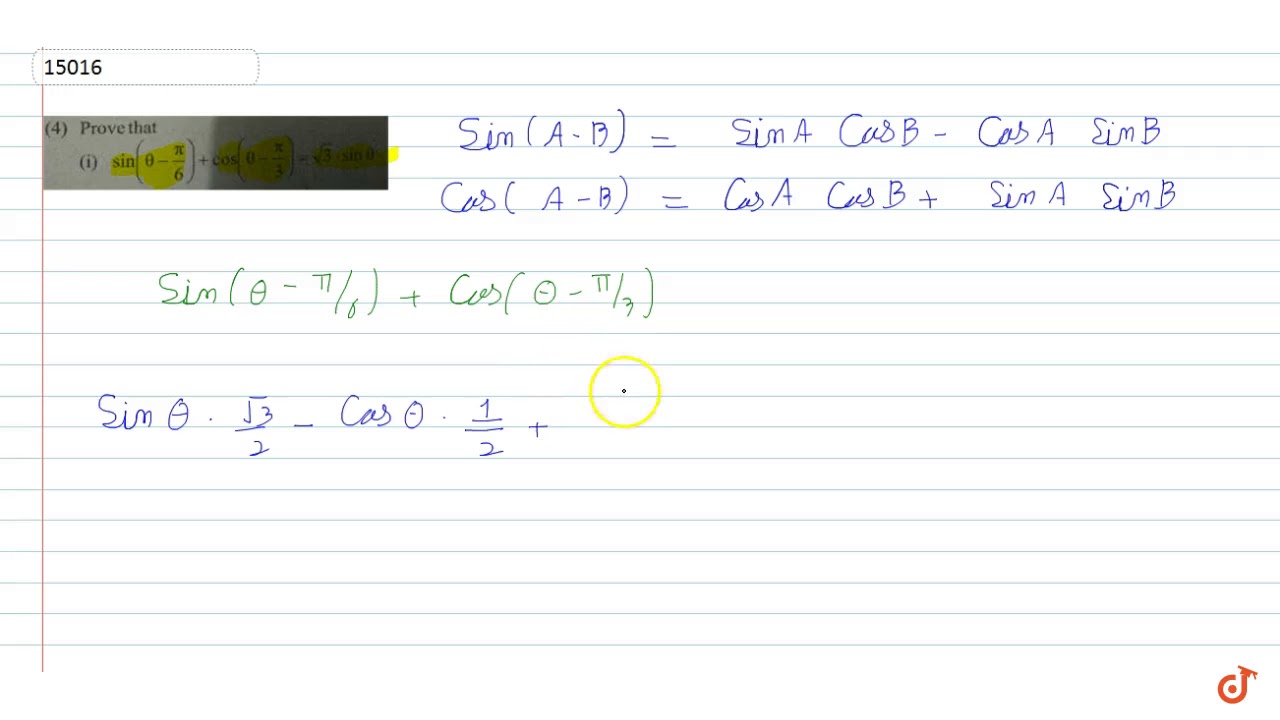 15016
(4) Prove that
(i) sin(θ − π/6) + cos(θ − π/3) = √3 · sin θ
Sin(A - B) = SinA CosB - CosA SinB
Cos(A - B) = CosA CosB + SinA SinB
Sin(θ - π/6) + Cos(θ - π/3)
Sin θ · √3/2 - Cos θ · 1/2 +